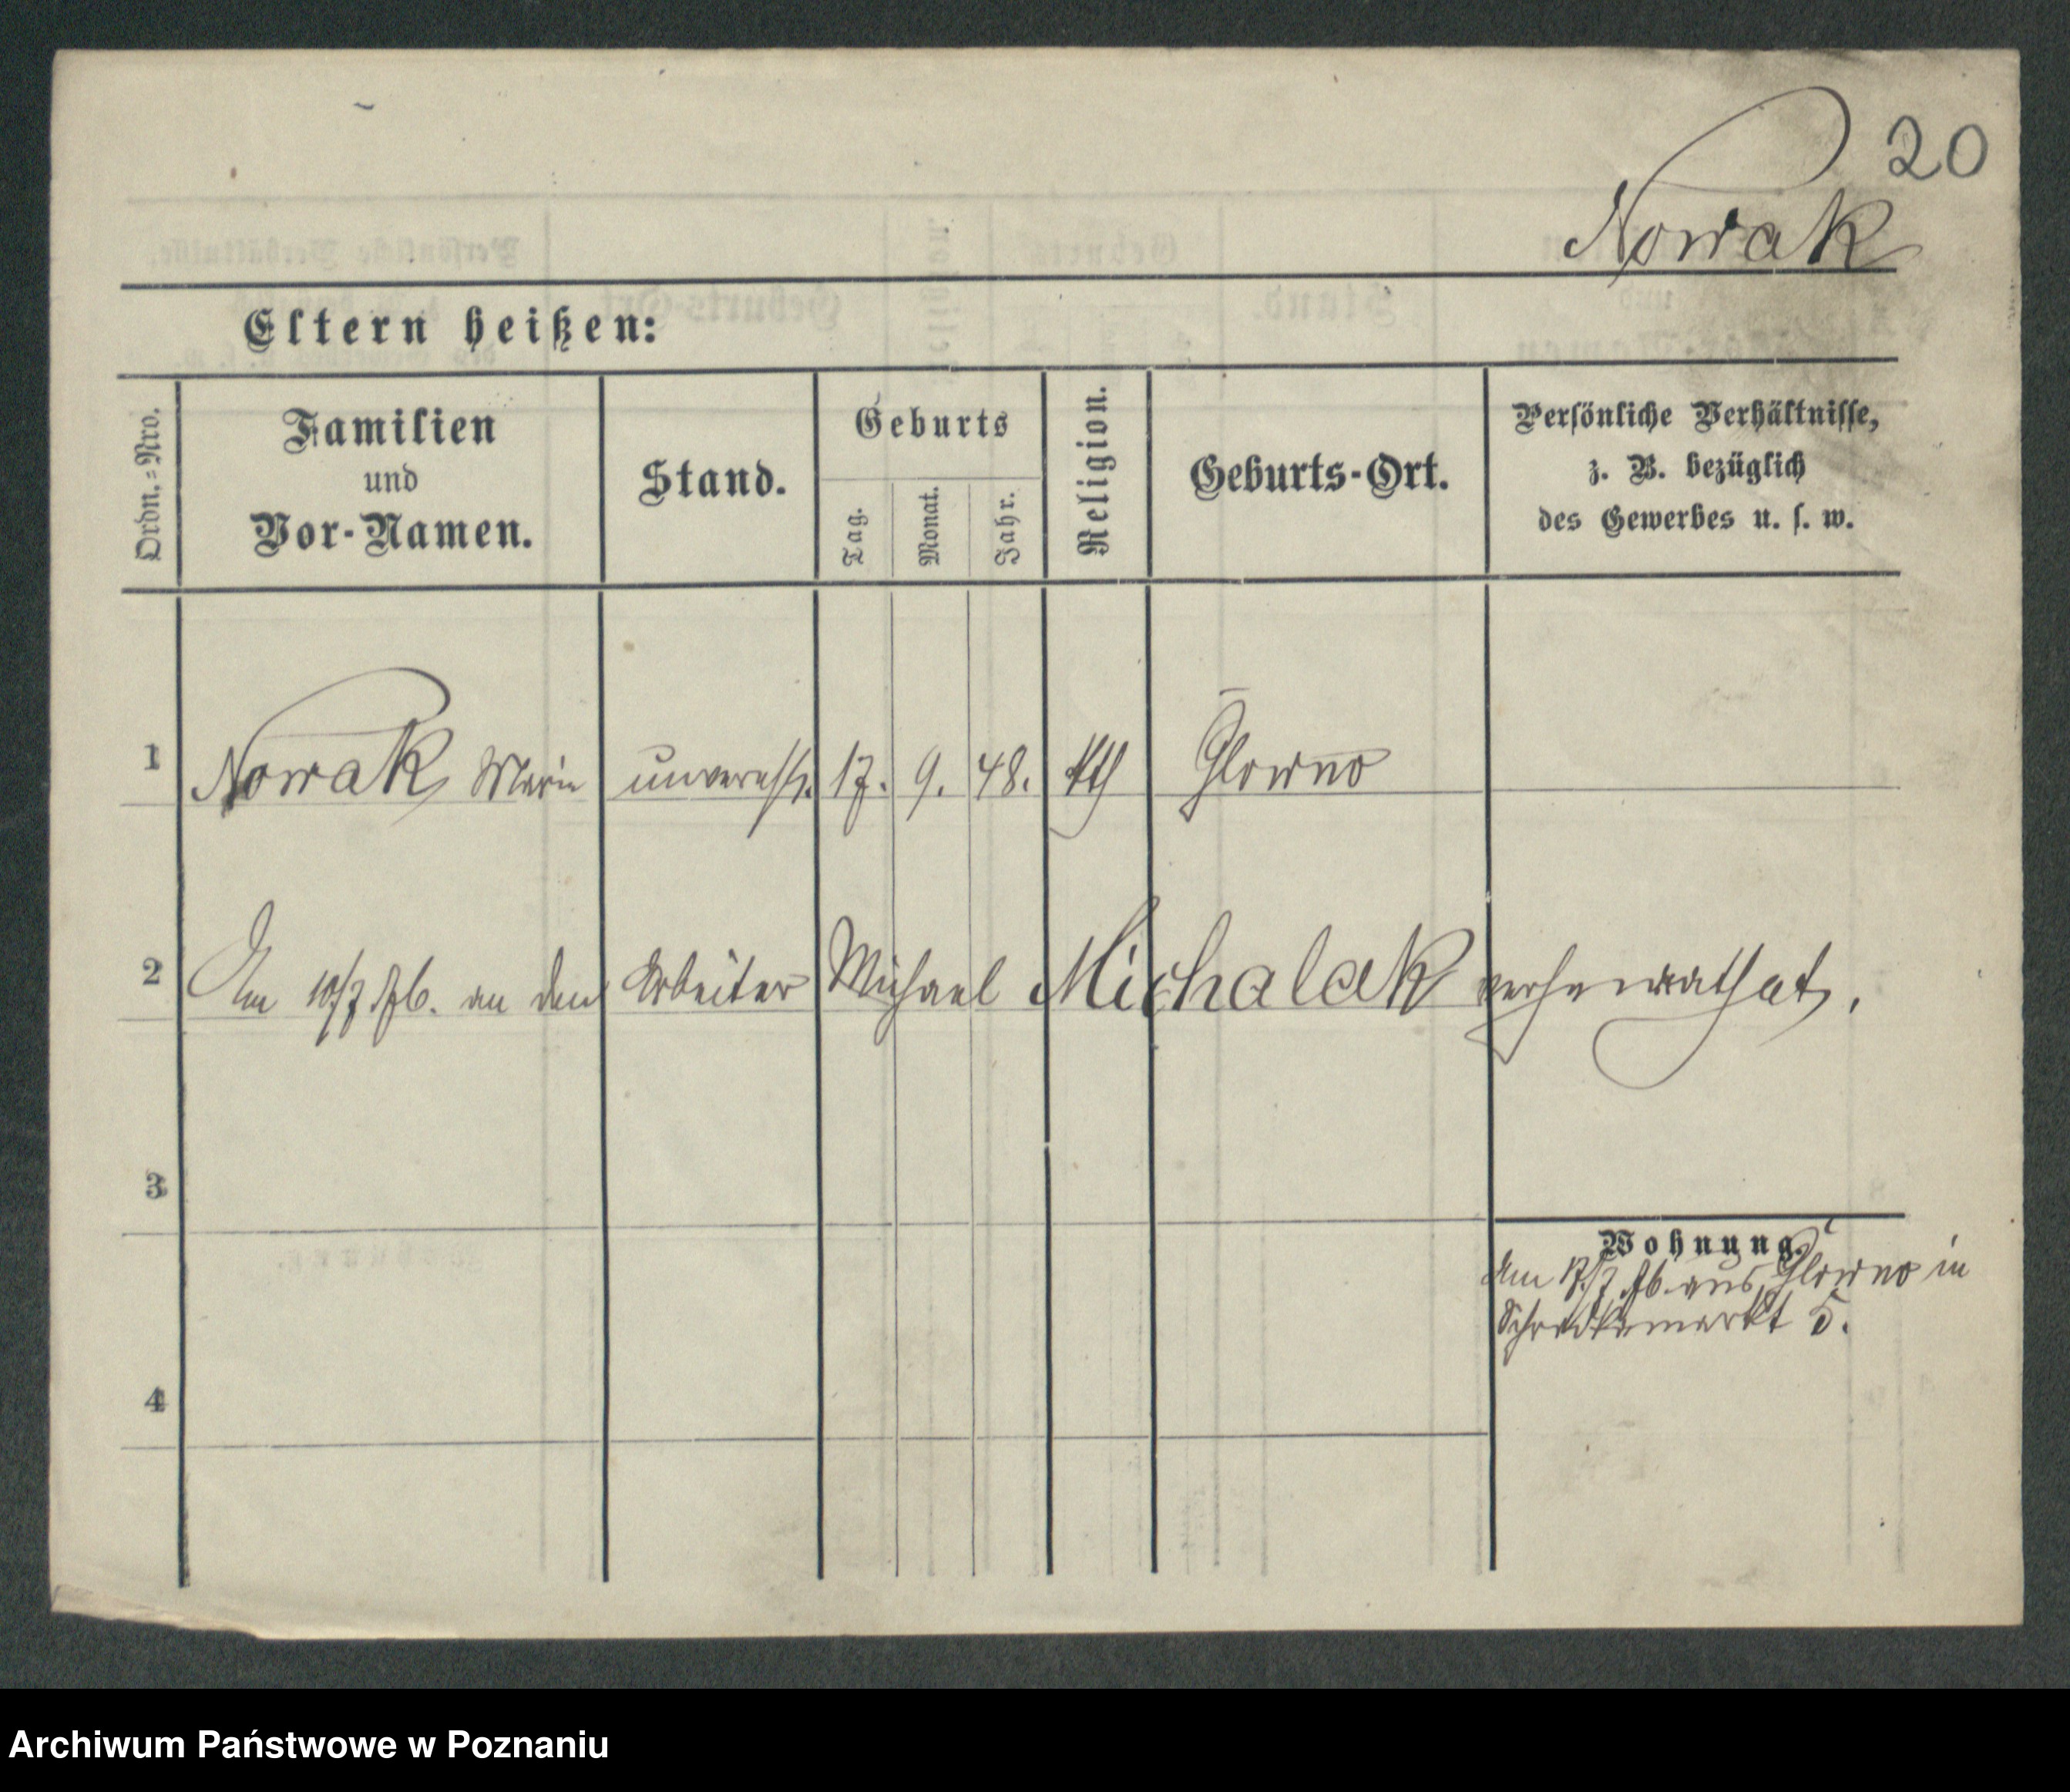 20
Nowak
Eltern heißen:
Ordn.-Nro.
Familien
und
Vor-Namen.
Stand.
Geburts
Tag.
Monat.
Jahr.
Religion.
Geburts-Ort.
Persönliche Verhältnisse,
z. B. bezüglich
des Gewerbes u. s. w.
1 Nowak Marie unvereh. 17. 9. 48. kth Glowno
2 Am 10/7 an den Arbeiter Michael Michalak verheirathet.
3
Wohnung.
Am aus Glowno in
5.
4
Archiwum Państwowe w Poznaniu